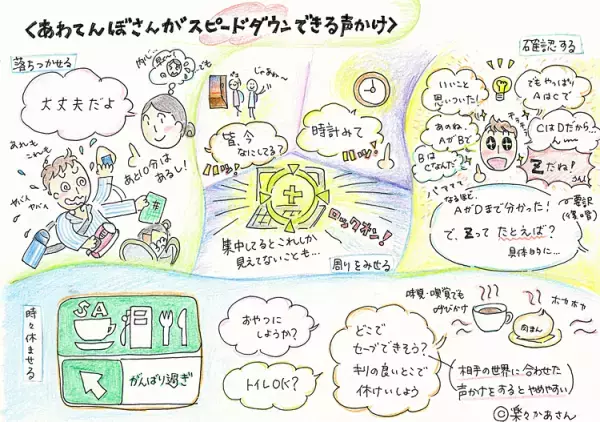 <あわてんぼさんがスピードダウンできる声かけ>
落ちつかせる
丈丈夫だよ
でも
あれも
これも
あと10分は
あるし!
ヤバイ
ヤバイ
じゃあね〜
皆、今
なにしてる?
時計みて
ハッ!
ハッ!
ロックオン!
集中してるとこれしか
見えてないことも…
周りをみせる
確認する
いいこと
思いついた!
でもやっぱり
AはCで
あのね、
AがBで
BはCなんだ?
CはDだから…
Zだね!
うん!
なるほど、
AがDまで分かった!
で、Zって たとえば?
具体的に…
要訳
時々休ませる
SA
がんばり過ぎ
おやつに
しようか?
トイレOK?
どこで
セーブできそう?
キリの良いとこで
休けいしよう
味覚・嗅覚でも
呼びかけ
ホカホカ
肉まん
相手の世界に合わせた
声かけをするとやめやすい
©楽々かあさん